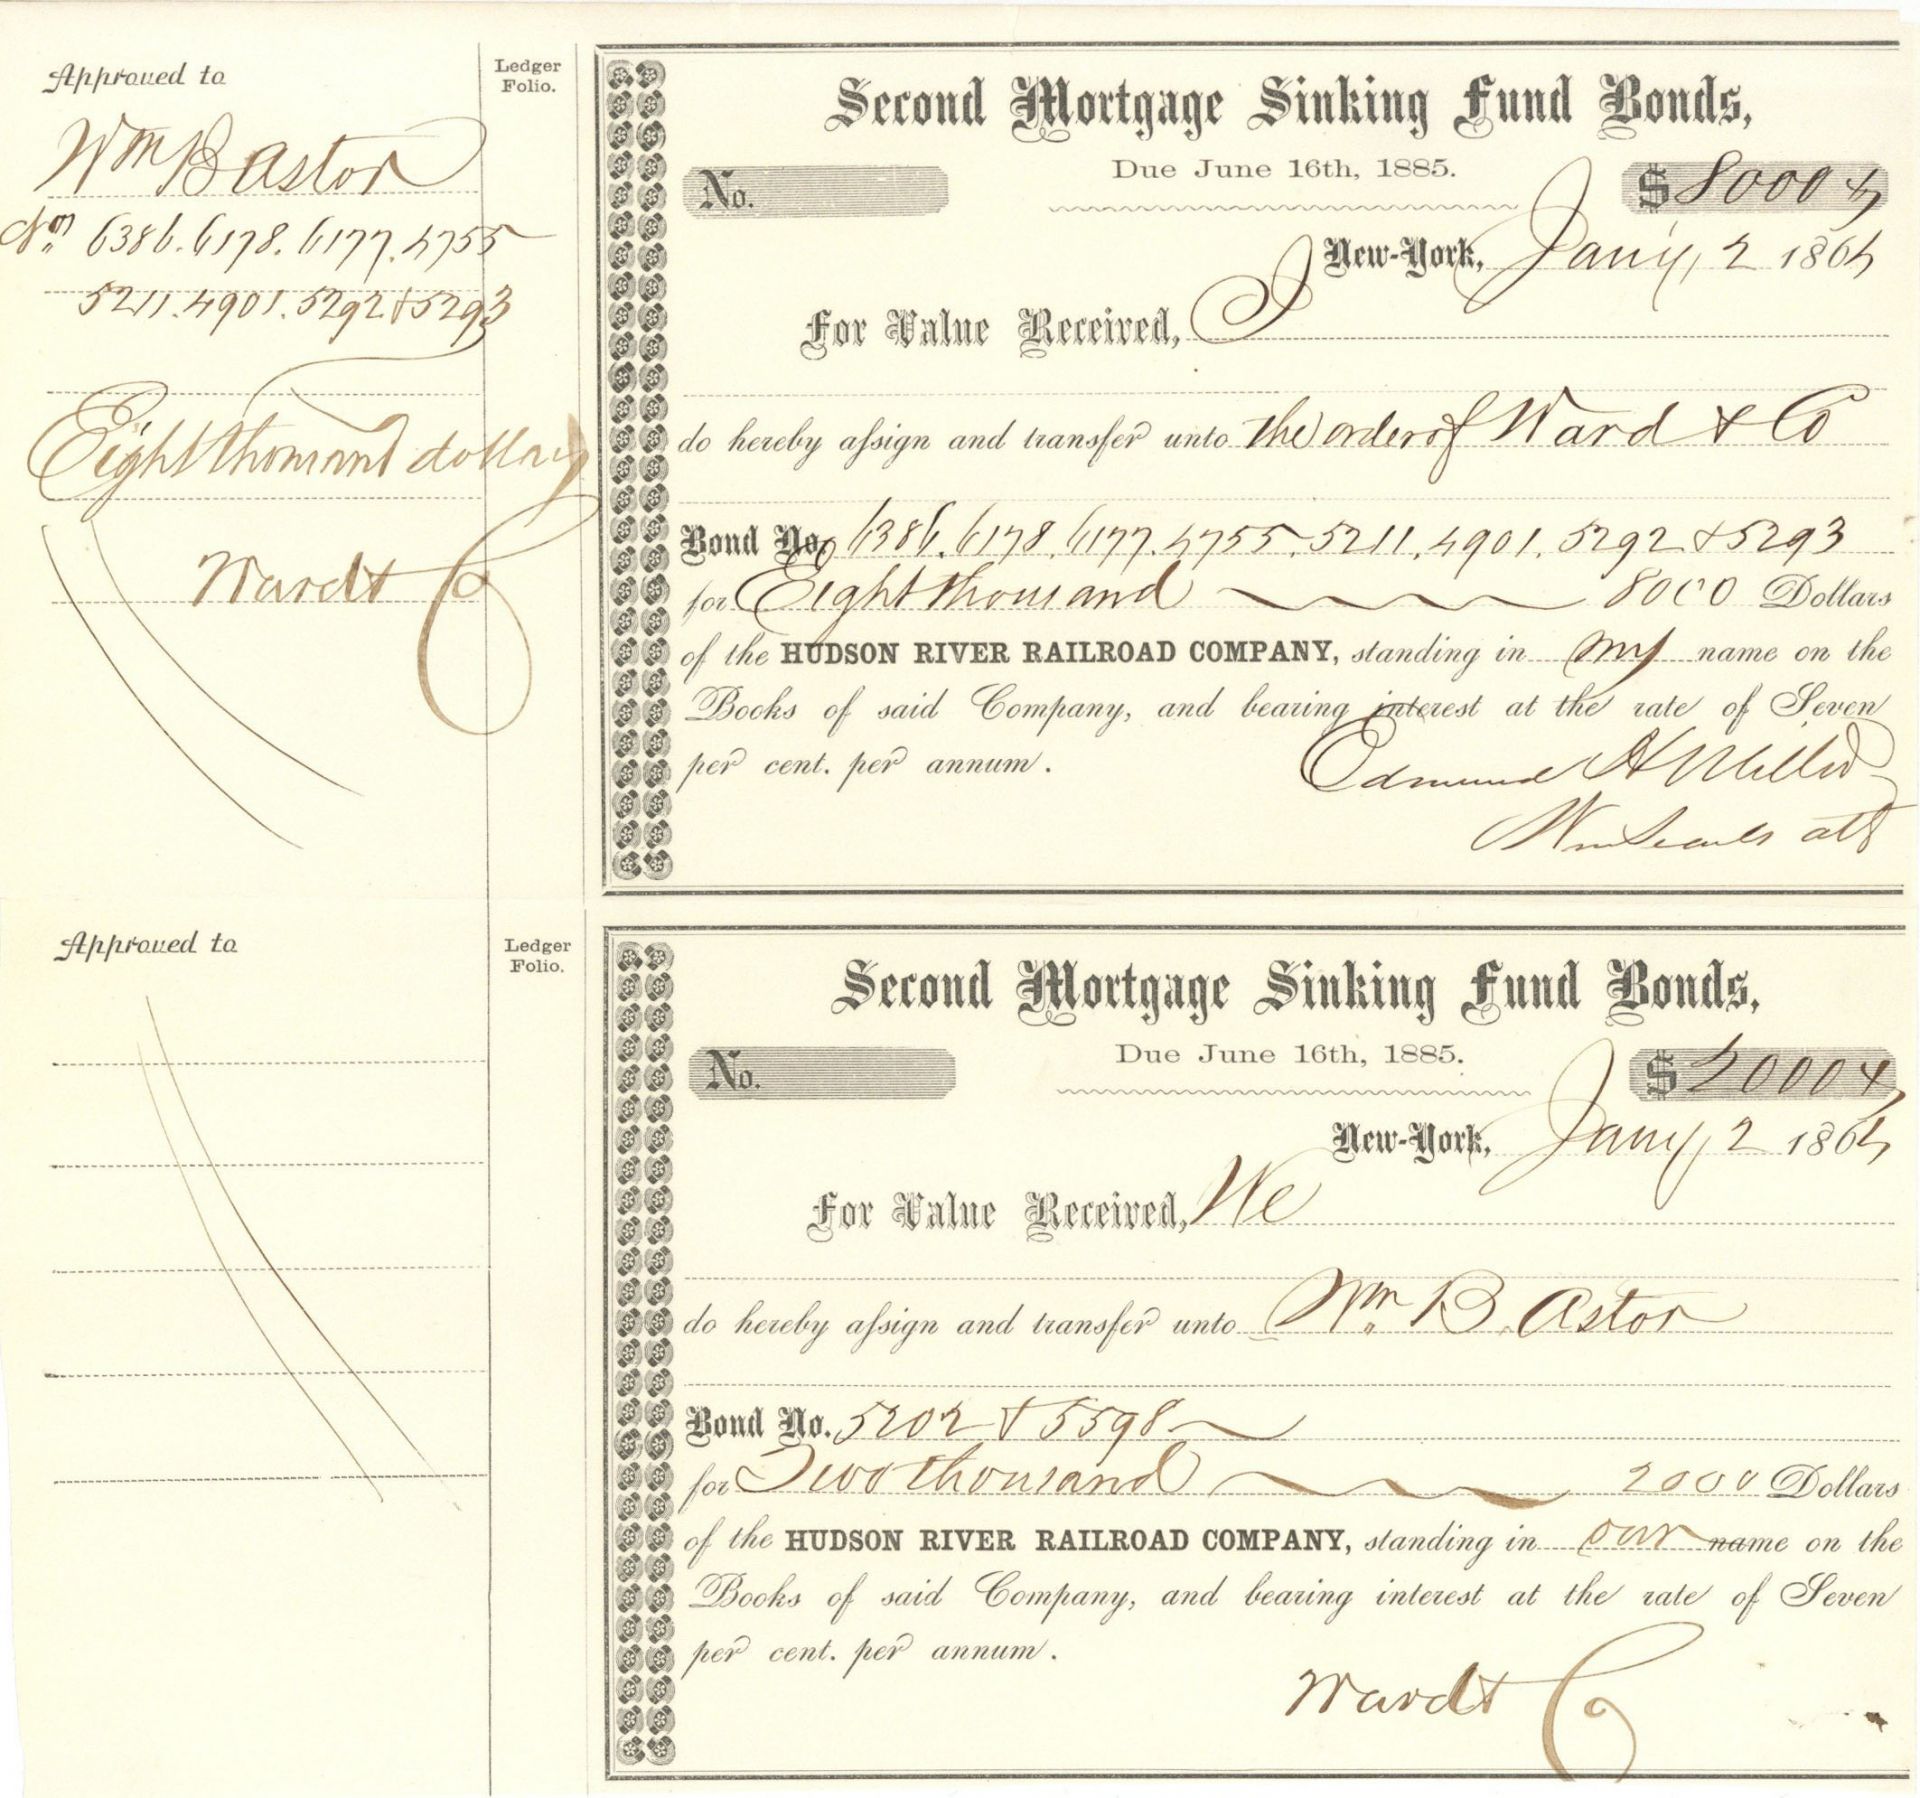 Approved to
Ledger
Folio.
Wm B Astor
Nos 6386. 6178. 6177. 4755
5211. 4901. 5292 & 5293
Eight thousand dollars
Ward & Co
Second Mortgage Sinking Fund Bonds,
Due June 16th, 1885.
No.
$ 8000
New-York, Jany, 2 1864
For Value Received, I
do hereby assign and transfer unto the order of Ward & Co
Bond No. 6386. 6178. 6177. 4755. 5211. 4901. 5292 & 5293
for Eight thousand 8000 Dollars
of the HUDSON RIVER RAILROAD COMPANY, standing in my name on the
Books of said Company, and bearing interest at the rate of Seven
per cent. per annum.
Edmund H Miller
Wm att
Approved to
Ledger
Folio.
Second Mortgage Sinking Fund Bonds,
Due June 16th, 1885.
No.
$ 2000
New-York, Jany, 2 1864
For Value Received, We
do hereby assign and transfer unto Wm. B. Astor
Bond No. 5202 & 5598
for Two thousand 2000 Dollars
of the HUDSON RIVER RAILROAD COMPANY, standing in our name on the
Books of said Company, and bearing interest at the rate of Seven
per cent. per annum.
Ward & Co